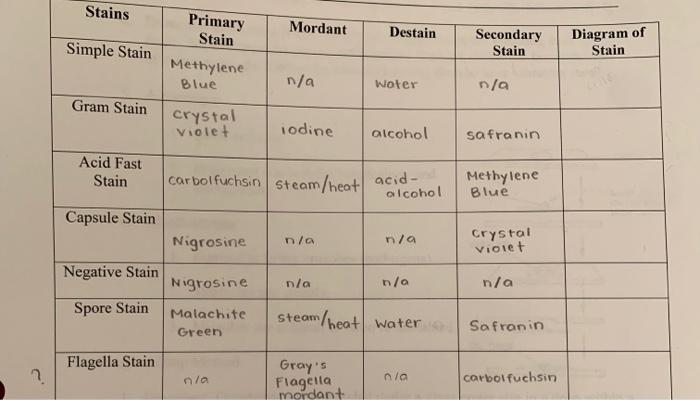 Stains
Primary
Stain
Mordant
Destain
Secondary
Stain
Diagram of
Stain
Simple Stain
Methylene
Blue
n/a
water
n/a
Gram Stain
crystal
violet
iodine
alcohol
safranin
Acid Fast
Stain
carbolfuchsin
steam/heat
acid-
alcohol
Methylene
Blue
Capsule Stain
Nigrosine
n/a
n/a
crystal
violet
Negative Stain
Nigrosine
n/a
n/a
n/a
Spore Stain
Malachite
Green
steam/heat
water
Safranin
?
Flagella Stain
n/a
Gray's
Flagella
mordant
n/a
carbolfuchsin